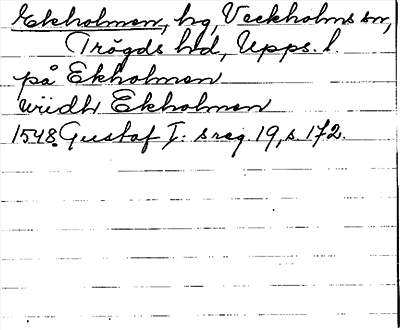 Ekholmen, hg, Veckholms sn,
Trögds hd, Upps. l.
på Ekholmen
wiidh Ekholmen
1548. Gustaf I:s reg. 19, s. 172.